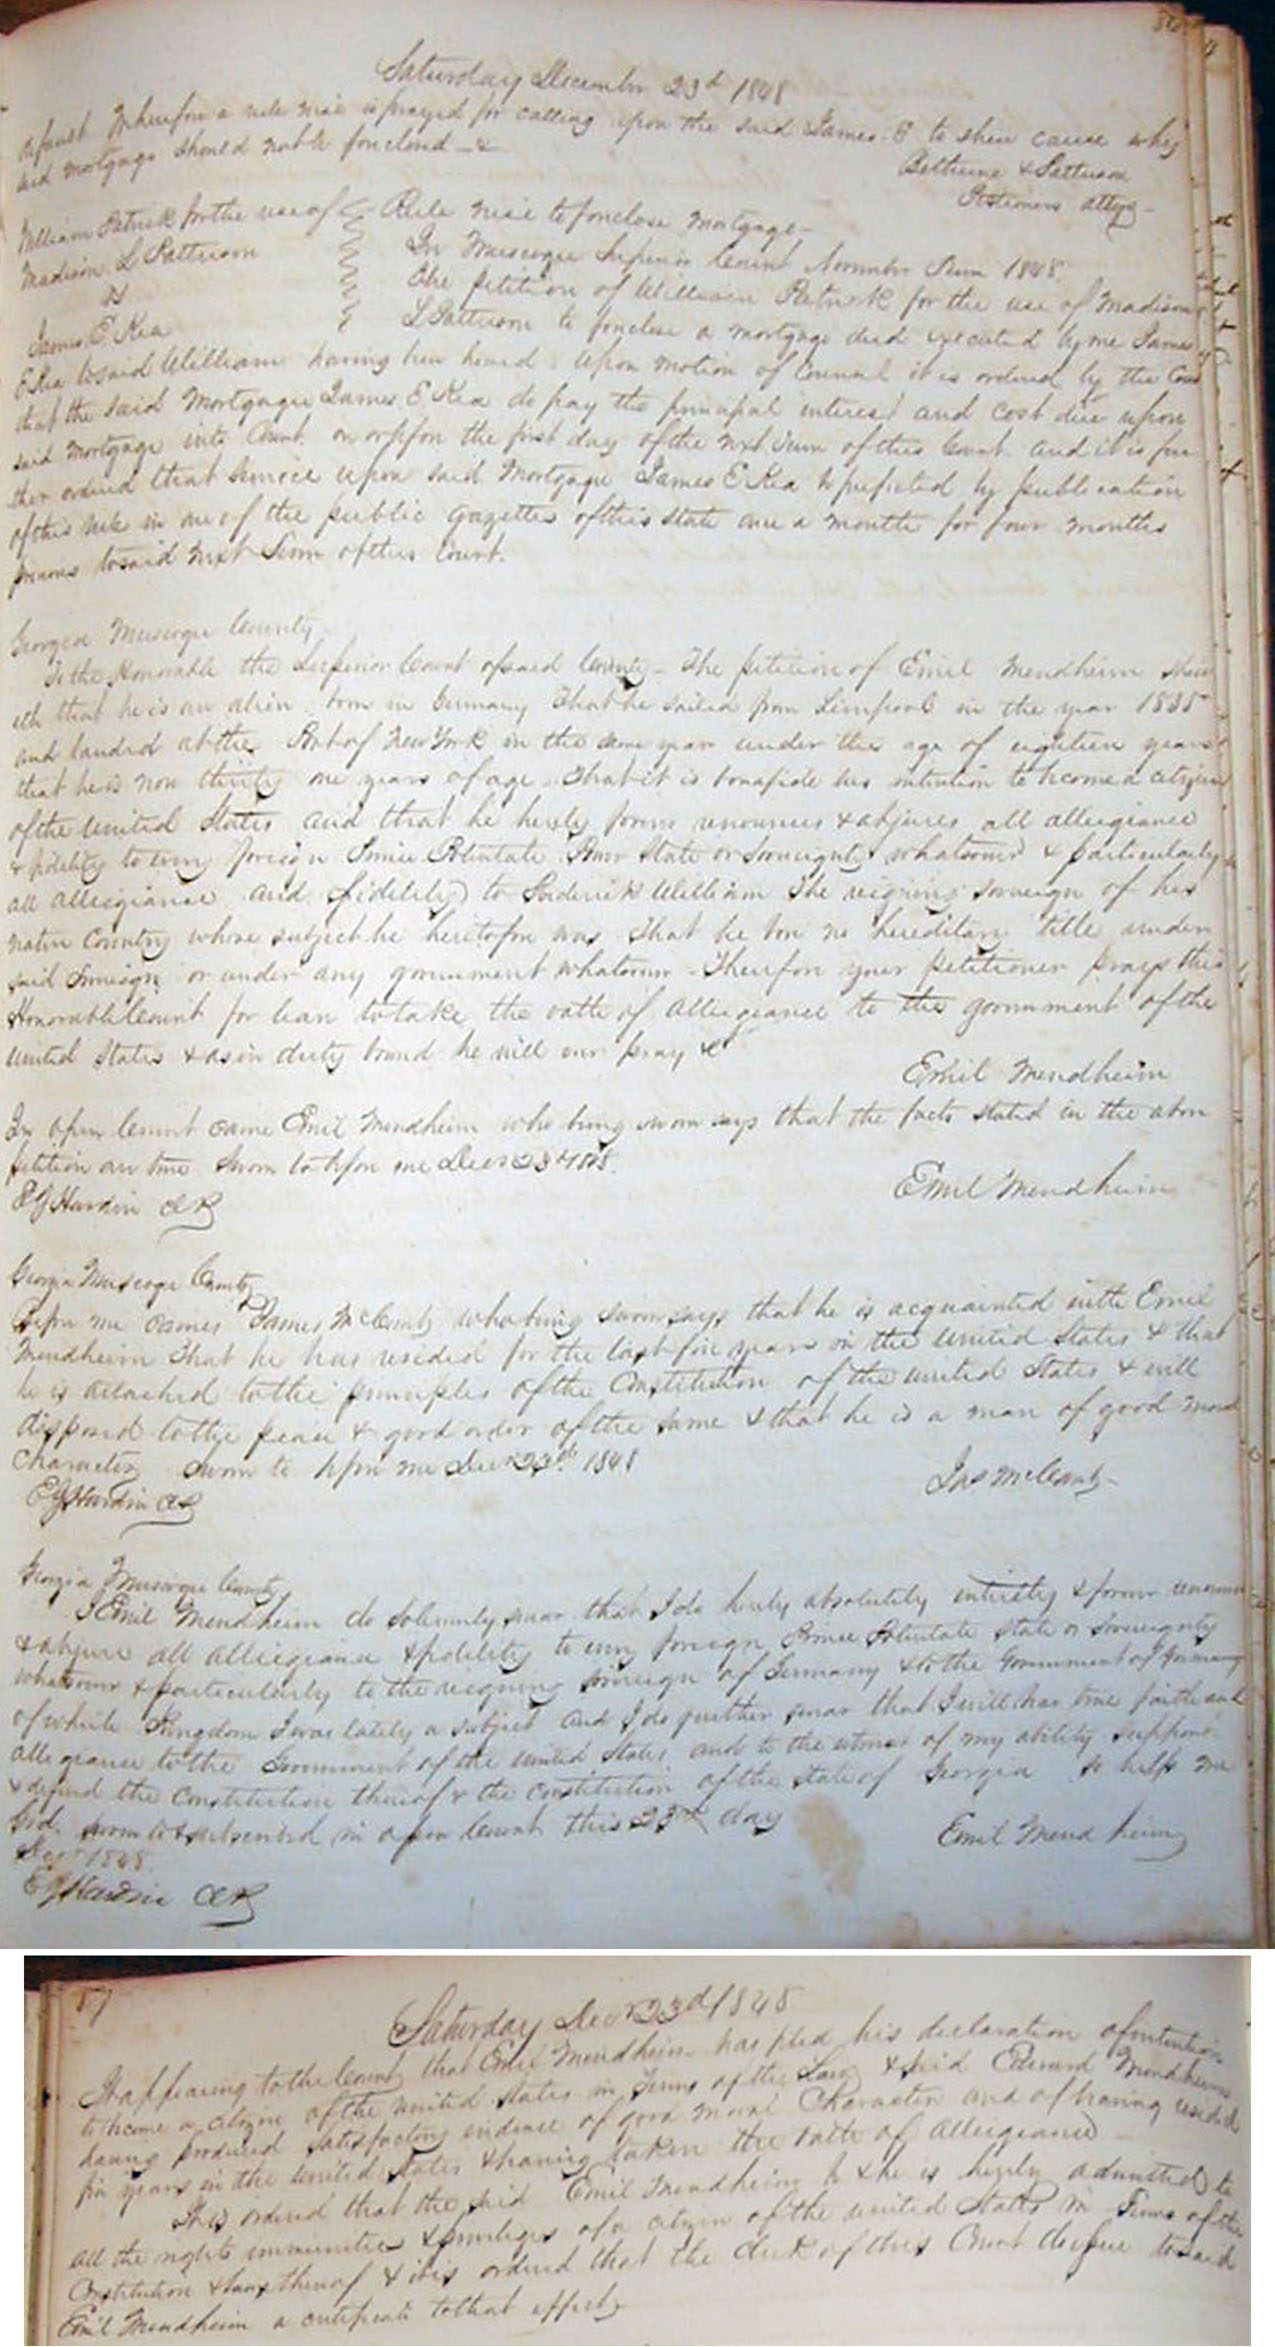 Saturday December 23d 1848
aforesaid Wherefore a rule nisi is prayed for calling upon the said James E to shew cause why
said mortgage should not be foreclosed &c
Bethune & Patterson
Petitioners attys
William Patrick for the use of
Madison L Patterson
vs
James E Rea
Rule nisi to foreclose mortgage
In Muscogee Superior Court November Term 1848
The petition of William Patrick for the use of Madison
L Patterson to foreclose a mortgage deed executed by me James
E Rea to said William having been heard. Upon motion of Counsel it is ordered by the Court
that the said Mortgager James E Rea do pay the principal interest and cost due upon
said Mortgage into Court on or before the first day of the next Term of this Court and it is fur
ther ordered that service upon said Mortgager James E Rea be perfected by publication
of this rule in one of the public Gazettes of this State once a month for four months
previous to said next Term of this Court.
Georgia Muscogee County
To the Honorable the Superior Court of said County - The petition of Emil Mendheim shew
eth that he is an alien born in Germany That he sailed from Liverpool in the year 1835
and landed at the Port of New York in the same year under the age of eighteen years
that he is now thirty one years of age. That it is bonafide his intention to become a citizen
of the United States and that he hereby forever renounces & abjures all allegiance
& fidelity to every foreign Prince Potentate Power State or Sovereignty whatsoever & particularly
all allegiance and fidelity to Frederick William The reigning sovereign of his
native Country whose subject he heretofore was That he bore no hereditary title under
said Sovereign or under any government whatsoever - Therefore your petitioner prays this
Honorable Court for leave to take the oath of allegiance to the government of the
United States & as in duty bound he will ever pray &c
Emil Mendheim
In open Court came Emil Mendheim who being sworn says that the facts stated in the above
petition are true Sworn to before me Decr 23d 1848.
E J Hardin Clk
Emil Mendheim
Georgia Muscogee County
Before me comes James McCanty who being sworn says that he is acquainted with Emil
Mendheim That he has resided for the last five years in the United States & that
he is attached to the principles of the Constitution of the United States & well
disposed to the peace & good order of the same & that he is a man of good moral
Character Sworn to before me Decr 23d 1848
E J Hardin Clk
Jas McCanty
Georgia Muscogee County
I Emil Mendheim do solemnly swear that I do hereby absolutely entirely & forever renounce
& abjure all allegiance & fidelity to every foreign Prince Potentate State or Sovereignty
whatsoever & particularly to the reigning sovereign of Germany & to the Government of Germany
of which Kingdom I was lately a subject and I do further swear that I will bear true faith and
allegiance to the Government of the United States and to the utmost of my ability support
& defend the Constitution thereof & the Constitution of the State of Georgia so help me
God. Sworn to & subscribed in open Court this 23rd day
Decr 1848.
E J Hardin Clk
Emil Mendheim
87
Saturday Decr 23d 1848
It appearing to the Court that Emil Mendheim has filed his declaration of intention
to become a citizen of the United States in Terms of the Law & said Edward Mendheim
having produced satisfactory evidence of good moral Character and of having resided
five years in the United States & having taken the oath of Allegiance
It is ordered that the said Emil Mendheim be & he is hereby admitted to
all the rights immunities & privileges of a citizen of the United States in Terms of the
Constitution & laws thereof & it is ordered that the clerk of this Court do issue to said
Emil Mendheim a certificate to that effect